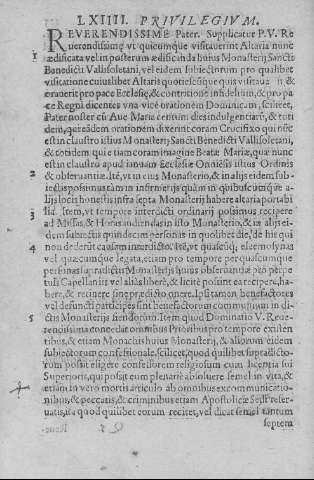 LXIIII. PRIVILEGIVM.
REVERENDISSIME Pater. Supplicatur P.V. Re
uerendissimæ vt quicumque visitauerint Altaria nunc
1 ædificata vel in posterum ædificanda huius Monasterij Sancti
Benedicti Vallisoletani, vel eidem subiectorum pro qualibet
visitatione cuiuslibet Altaris quotiescũque quis visitaue it &
orauerit pro pace Ecclesię, & contritione infidelium, & pro pa
ce Regni dicentes vna vice orationem Dominicam, scilicet,
Pater noster cũ Aue Maria centum dies indulgentiarũ, & toti
dem, qui eandem orationem dixerint coram Crucifixo qui nũc
est in claustro istius Monasterij Sancti Benedicti Vallisoletani,
& totidem qui etiam coram imagine Beatæ Mariæ, quæ nunc
est in claustro apud ianuam Ecclesiæ istius Ordinis
& obseruantiæ. Itẽ, vt in eius Monasterio, & in alijs eidem sub-
iectis possimus tam in infirmerijs quàm in quibuscumque a-
lijs locis honestis infra septa Monasterij habere altaria portabi
2 lia. Item, vt tempore interdicti ordinarij possimus recipere
3 ad Missas, & Horas audiendas in isto Monasterio, & in alijs ei
dem subiectis quindecim personas in quolibet die, de his qui
4 non dederũt causam interdicto. Itẽ, vt quascũq; eleemosynas
vel quæcumque legata, etiam pro tempore per quascumque
personas supradictis Monasterijs huius obseruantiæ pro perpe
tuis Capellanijs vel alias liberè, & licitè possint recipere, ha-
bere, & retinere sine prædicto onere. Ipsi tamen benefactores
vel defuncti participes sint benefactorum communium in di-
5 ctis Monasterijs fiendorum. Item quod Dominatio V. Reue-
rendissima concedat omnibus Prioribus pro tempore existen
tibus, & etiam Monachis huius Monasterij, & aliorum eidem
subiectorum confessionale, scilicet, quod quilibet supradicto-
rum possit eligere confessorem religiosum cum licentia sui
Superioris, qui possit eum plenariè absoluere semel in vita, &
etiam in vero mortis articulo ab omnibus excommunicatio-
nibus, & peccatis, & criminibus etiam Apostolicæ Sedi reser-
uatis, ita quod quilibet eorum recitet, vel dicat semel tantum
septem